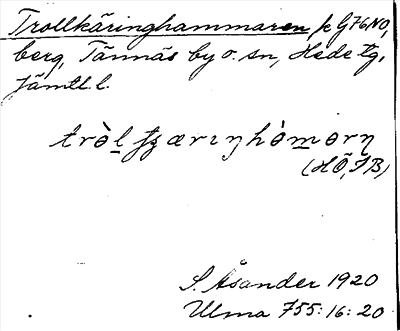 Trollkäringhammaren k G76NO,
berg, Tännäs by o. sn, Hede tg,
Jämtl l.
tròl̲ʈʂærɪŋhòm̲ərn̥
(HÖ, JB)
S. Åsander 1920
Ulma 755:16:20